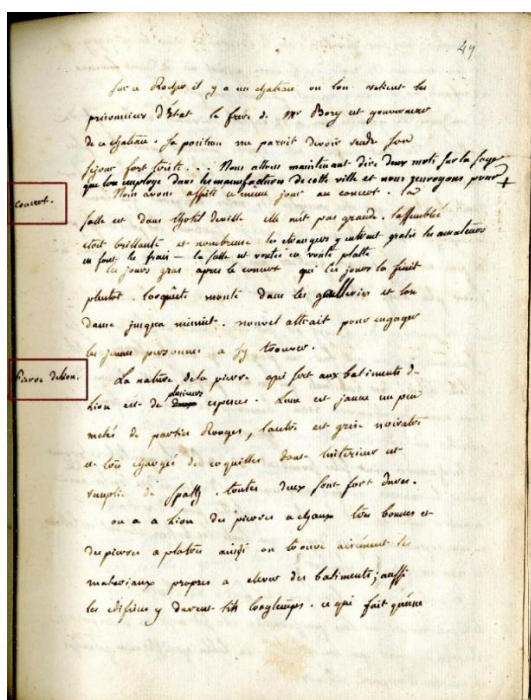 49
sur ce Rocher il y a un chateau ou lon retient les
prisonniers d'Etat le frere de Mr Bory est gouverneur
de ce chateau. sa position me paroit devoir rendre son
séjour fort triste... Nous allons maintenant dire deux mots sur la
que lon employe dans les manufactures de cette ville et nous renvoyons pour +
concert.
Nous avons assisté ce meme jour au concert. la
salle est dans lhotel deville elle nest pas grande. lassemblée
etoit brillante et nombreuse les etrangers y entrent gratis les amateurs
en font les frais — la salle est voutée en voute platte
les jours gras apres le concert qui ces jours la finit
plutot. lorquestre monte dans les galleries et lon
danse jusqua minuit. nouvel attrait pour engager
les jeunes personnes a sy trouver.
Pierre delion.
La nature dela pierre qui sert aux batiments de
Lion est de plusieurs especes. Lune est jaune un peu
melés de parties Rouges, lautre est grise noiratre
et très chargés de coquilles dont linterieur est
remplie de Spath. toutes deux sont fort dures.
on a a Lion des pierres a chaux très bonnes et
des pierres a platres ainsi on trouve aisément les
materiaux propres a elever des batiments; aussi
les edifices y durent tres longtemps. ce qui fait quune